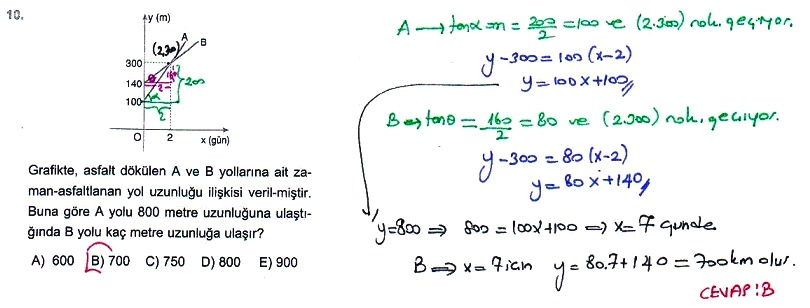 10.
y (m)
A
B
(2,300)
300
140
100
θ
160
200
2
α
2
0
2
x (gün)
Grafikte, asfalt dökülen A ve B yollarına ait za-
man-asfaltlanan yol uzunluğu ilişkisi veril-miştir.
Buna göre A yolu 800 metre uzunluğuna ulaştı-
ğında B yolu kaç metre uzunluğa ulaşır?
A) 600 B) 700 C) 750 D) 800 E) 900
A → tanα=m = 200/2 = 100 ve (2.300) nok. geçiyor.
y-300 = 100(x-2)
y = 100x+100//
B ⇒ tanθ = 160/2 = 80 ve (2.300) nok. geçiyor.
y-300 = 80(x-2)
y = 80x+140//
y=800 ⇒ 800 = 100x+100 ⇒ x=7 günde
B ⇒ x=7 için y=80.7+140 = 700km olur.
CEVAP:B